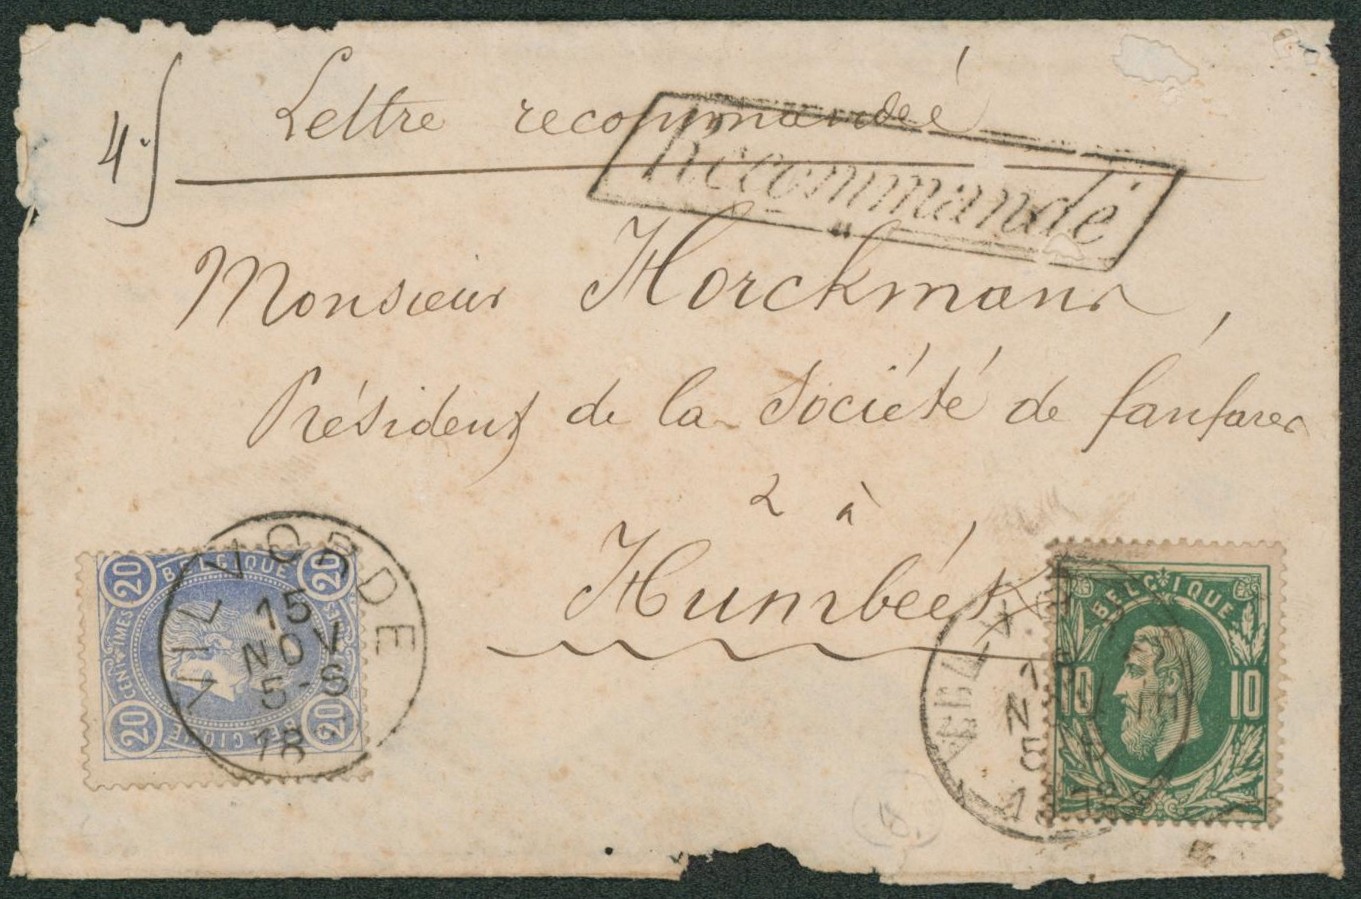 4.
Lettre recommandée
Recommandé
Monsieur Horckmans,
Président de la Société de fanfares
à
Humbéék
BELGIQUE
20 20
CENTIMES
20 20
BELGIQUE
VILVORDE
15
NOV
5-S
18
BELGIQUE
10 10
NOV